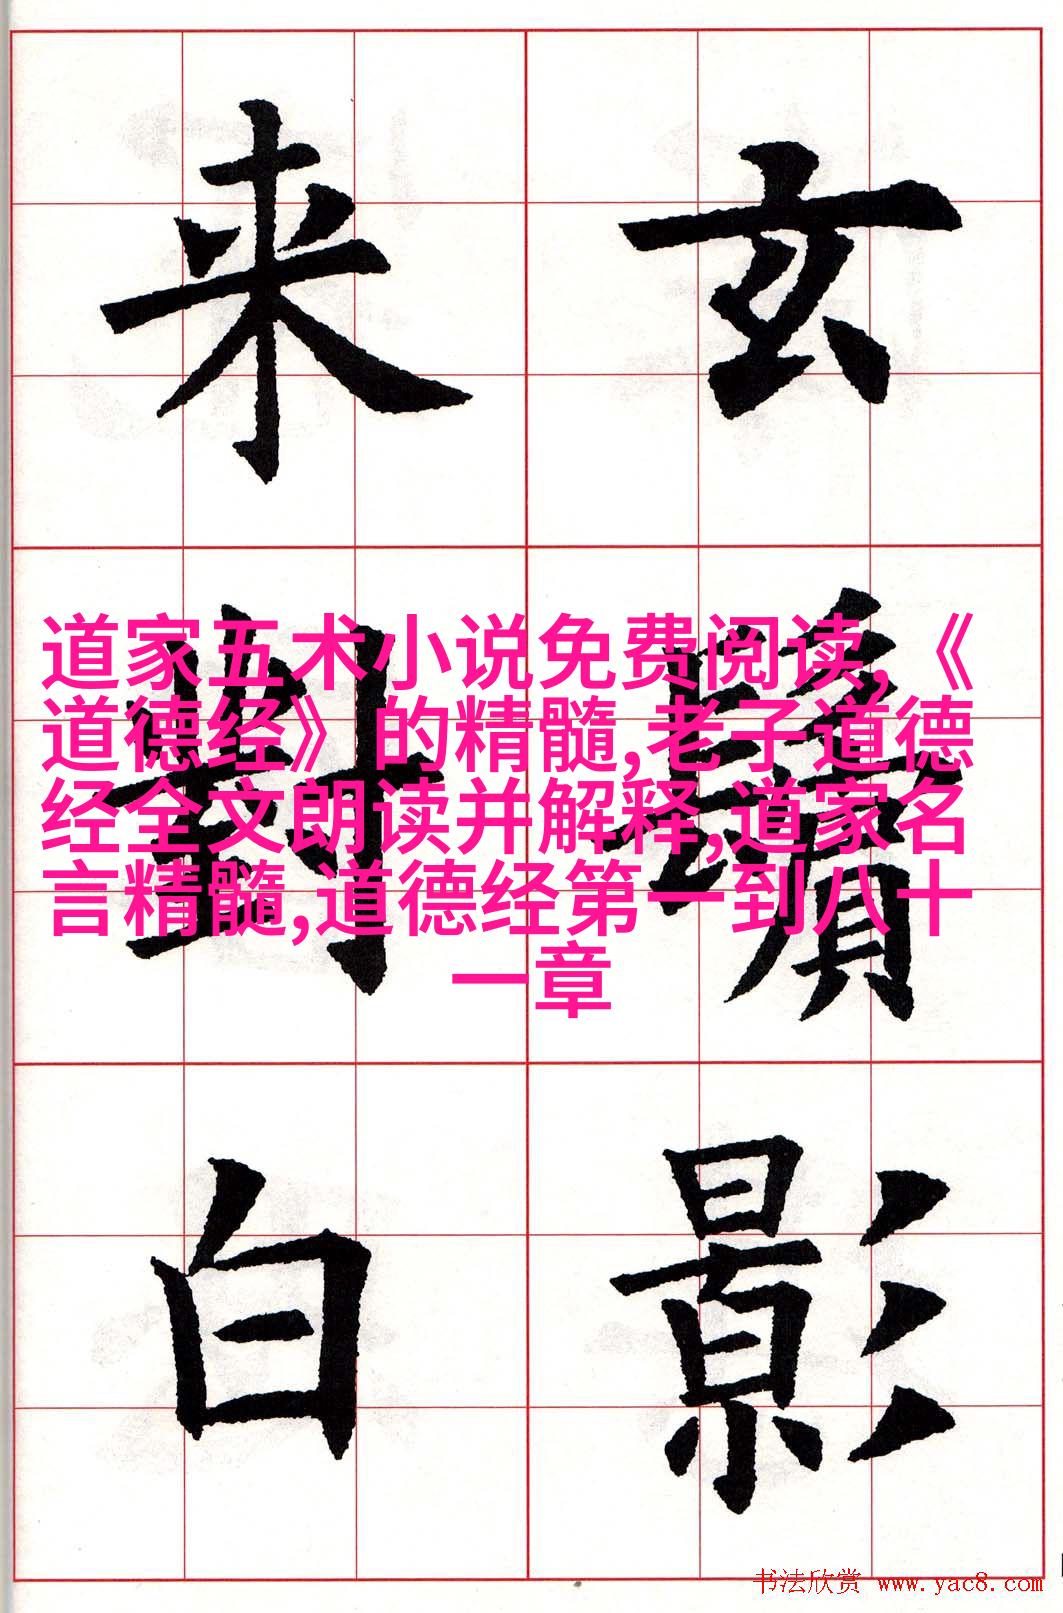 玄鬢影
来對白
道家五术小说免费阅读,《
道德经》的精髓,老子道德
经全文朗读并解释,道家名
言精髓,道德经第一到八十
一章
书法欣赏 www.yac8.com